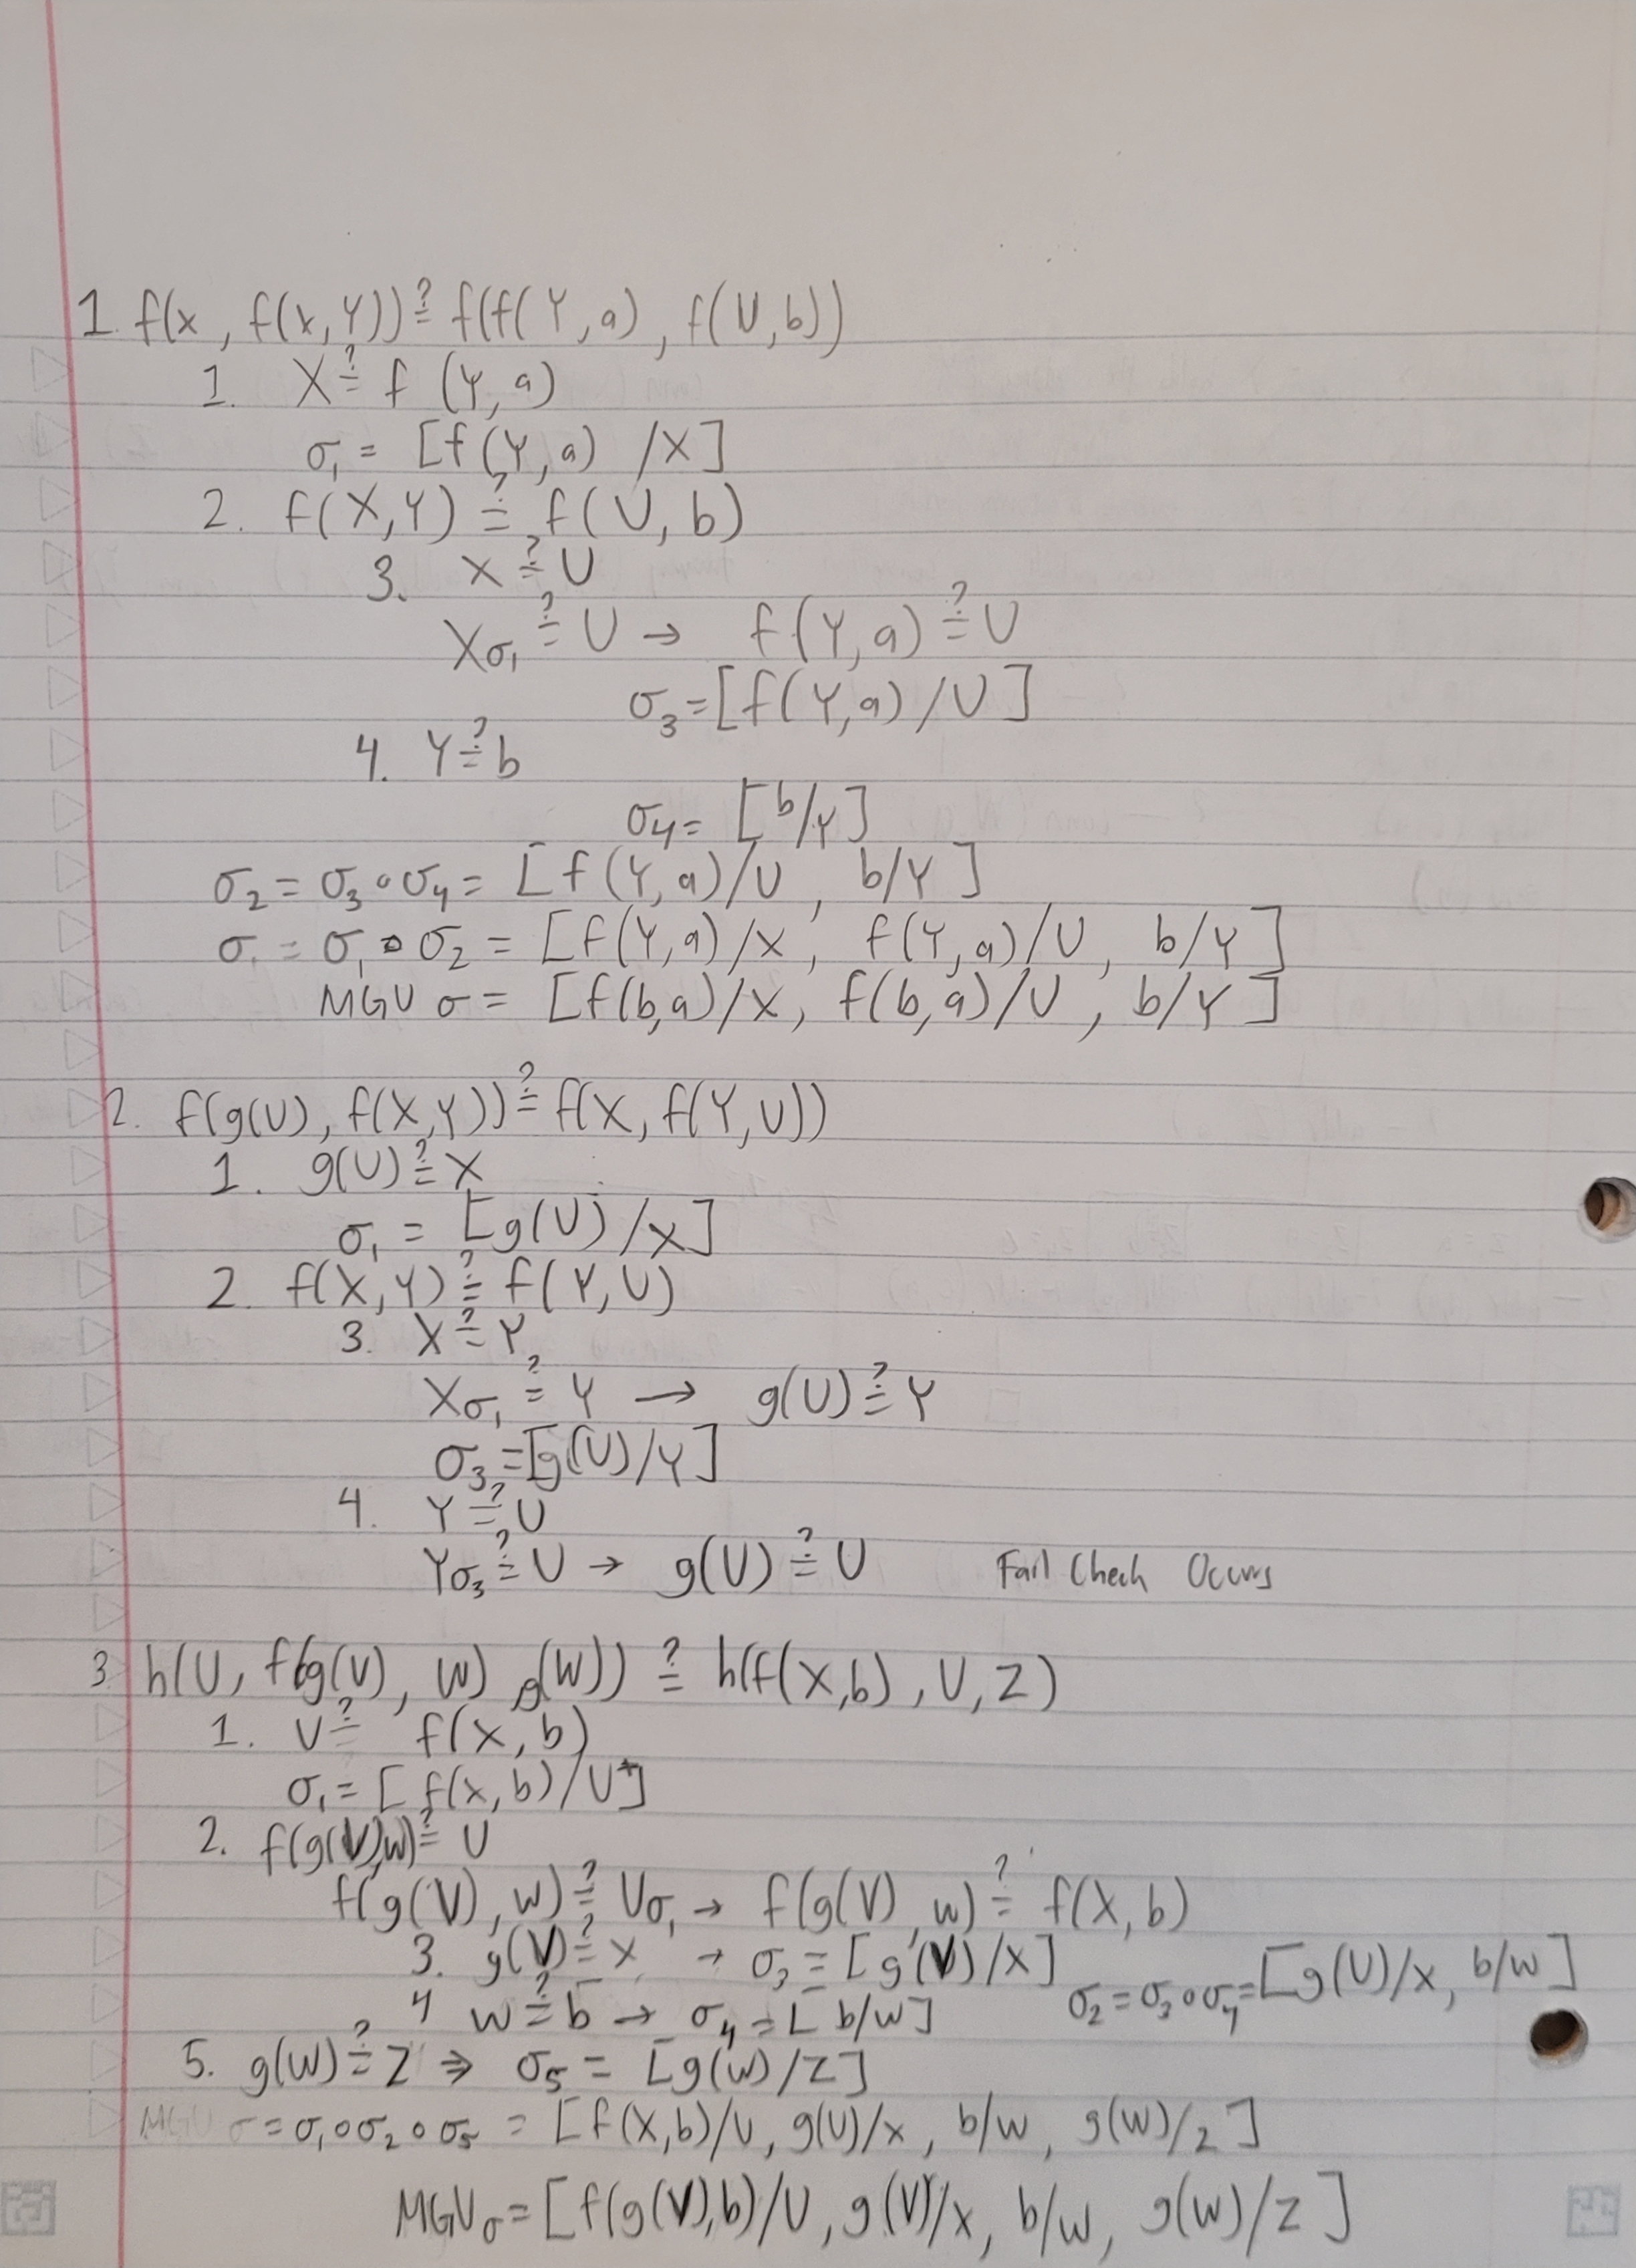 1. f(x, f(x,Y)) ≟ f(f(Y,a), f(U,b))
1. X ≟ f(Y,a)
σ₁ = [f(Y,a) /X]
2. f(X,Y) ≟ f(U,b)
3. X ≟ U
Xσ₁ ≟ U → f(Y,a) ≟ U
σ₃ = [f(Y,a)/U]
4. Y ≟ b
σ₄ = [b/Y]
σ₂ = σ₃∘σ₄ = [f(Y,a)/U, b/Y]
σ = σ₁∘σ₂ = [f(Y,a)/X, f(Y,a)/U, b/Y]
MGU σ = [f(b,a)/X, f(b,a)/U, b/Y]
2. f(g(U), f(X,Y)) ≟ f(X, f(Y,U))
1. g(U) ≟ X
σ₁ = [g(U)/x]
2. f(X,Y) ≟ f(Y,U)
3. X ≟ Y
Xσ₁ ≟ Y → g(U) ≟ Y
σ₃ = [g(U)/Y]
4. Y ≟ U
Yσ₃ ≟ U → g(U) ≟ U Fail Check Occurs
3. h(U, f(g(V), W), g(W)) ≟ h(f(X,b), U, Z)
1. U ≟ f(X,b)
σ₁ = [f(x,b)/U]
2. f(g(V),W) ≟ U
f(g(V),W) ≟ Uσ₁ → f(g(V),W) ≟ f(X,b)
3. g(V) ≟ X → σ₃ = [g(V)/X]
4 W ≟ b → σ₄ = [b/W] σ₂ = σ₃∘σ₄ = [g(U)/X, b/W]
5. g(W) ≟ Z ⇒ σ₅ = [g(W)/Z]
MGU σ = σ₁∘σ₂∘σ₅ = [f(X,b)/U, g(U)/X, b/W, g(W)/Z]
MGU σ = [f(g(V),b)/U, g(V)/X, b/W, g(W)/Z]